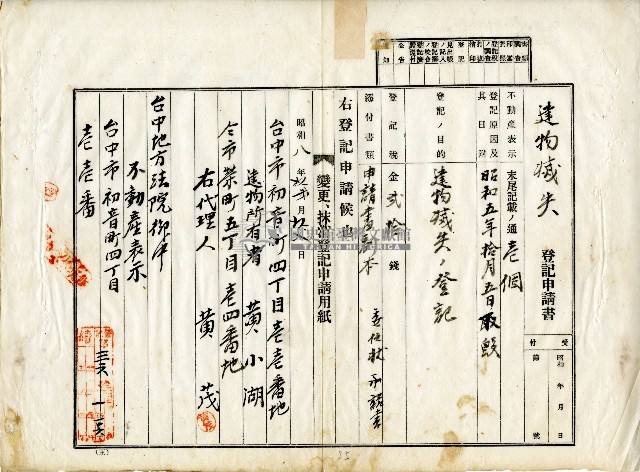 建物滅失 登記申請書
受付 昭和 年 月 日
第 號
不動産表示 末尾記載ノ通 壱個
登記原因及其日附 昭和五年拾月五日取毀
登記ノ目的 建物滅失ノ登記
登記税 金貳拾錢
添付書類 申請書副本 委任状
右登記申請候也
變更、抹消登記申請用紙
昭和八年 月 日
台中市初音町四丁目壱壱番地
建物所有者 黄小湖
仝市榮町五丁目壱四番地
右代理人 黄茂
台中地方法院御中
不動産表示
台中市初音町四丁目
壱壱番